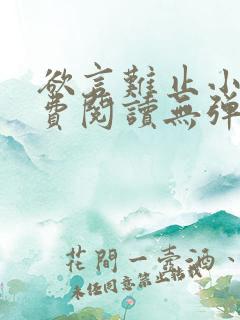 欲言難止小
費閱讀無彈
花間一壺酒、
未經同意禁止轉載